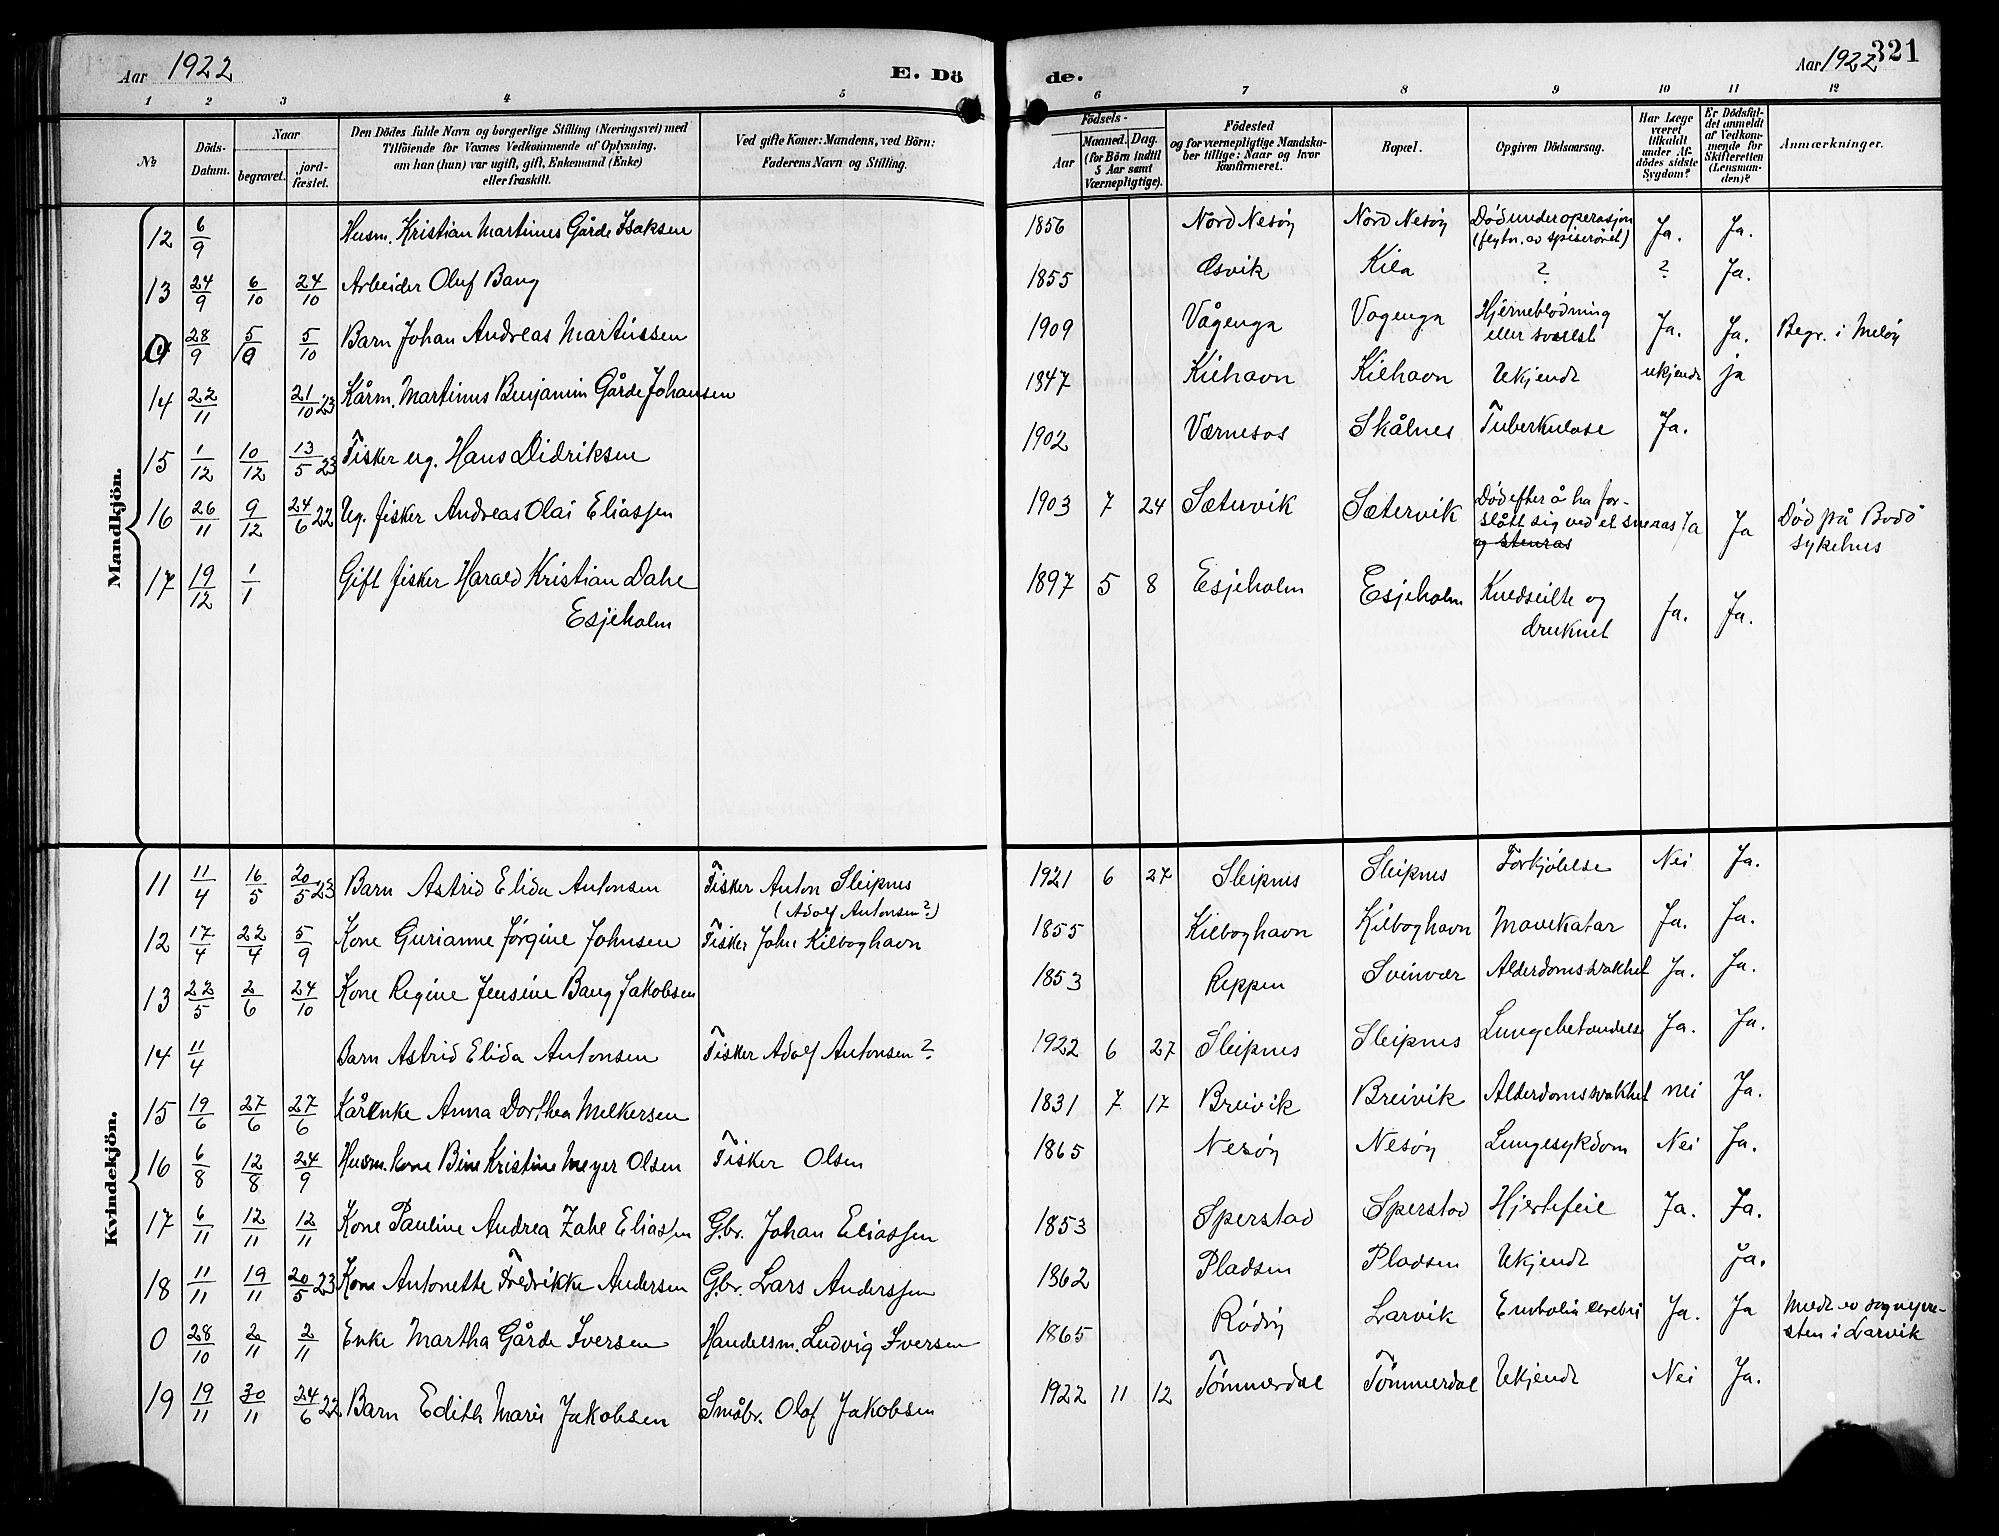 Aar 1922
E. Dö
de.
Aar 1922
321
1 2 3 4 5 6 7 8 9 10 11 12
No
Döds-
Datum.
Naar
begravet.
jord-
fæstet.
Den Dödes fulde Navn og borgerlige Stilling (Næringsvei) med
Tilföiende for Voxnes Vedkommende af Oplysning,
om han (hun) var ugift, gift, Enkemand (Enke)
eller fraskilt.
Ved gifte Koner: Mandens, ved Börn:
Faderens Navn og Stilling.
Födsels-
Aar
Maaned.
Dag.
(for Börn indtil
5 Aar samt
Værnepligtige).
Födested
og for værnepligtige Mandska-
ber tillige: Naar og hvor
konfirmeret.
Bopæl.
Opgiven Dödsaarsag.
Har Læge
været
tilkaldt
under Af-
dödes sidste
Sygdom?
Er Dödsfal-
det anmeldt
af Vedkom-
mende for
Skifteretten
(Lensman-
den)?
Anmærkninger.
Mandkjön.
12 6/9 Husm. Kristian Martinus Gårde Isaksen 1856 Nord Nesøy Nord Nesøy Død under operasjon Ja. Ja.
av spiserøret)
13 24/9 6/10 24/10 Arbeider Oluf Bang 1855 Esvik Kila ? ? Ja.
28/9 5/10 5/10 Barn Johan Andreas Martinssen 1909 Vågenga Vagenga Hjerneblødning Ja. Ja. Begr. i Meløy
eller svulst
14 22/11 21/10 23 Kårm. Martinus Benjamin Gårde Johansen 1847 Kilhavn Kilhavn Ukjendt ukjendt ja
15 1/12 10/12 13/5 23 Fisker ug. Hans Didriksen 1902 Værnesos Skålnes Tuberkulose Ja.
16 26/11 9/12 24/6 22 Ug. fisker Andreas Olai Eliassen 1903 7 24 Sætervik Sætervik Død efter å ha for-
slått sig ved et sneras Ja Ja Død på Bodø
og stenras sykehus
17 19/12 1/1 Gift fisker Harald Kristian Dahl 1897 5 8 Esjeholm Esjeholm Kuldseilte og Ja. Ja.
Esjeholm druknet
Kvindekjön.
11 11/4 16/5 20/5 23 Barn Astrid Elida Antonsen Fisker Anton Sleipnes 1921 6 27 Sleipnes Sleipnes Forkjølelse Nei Ja.
(Adolf Antonsen?)
12 17/4 22/4 5/9 Kone Gurianne Jørgine Johnsen Fisker John Kilboghavn 1855 Kilboghavn Kilboghavn Mavekatar Ja. Ja.
13 22/5 2/6 24/10 Kone Regine Jensine Bang Jakobsen 1853 Reppen Svinvær Alderdomssvakhet Ja. Ja.
14 11/4 Barn Astrid Elida Antonsen Fisker Adolf Antonsen? 1922 6 27 Sleipnes Sleipnes Lungebetændelse Ja. Ja.
15 19/6 27/6 27/6 Kårenke Anna Dorthea Melkersen 1831 7 17 Breivik Breivik Alderdomssvakhet nei Ja.
16 6/8 12/8 24/9 Husm. kone Bine Kristine Meyer Olsen Fisker Olsen 1865 Nesøy Nesøy Lungesykdom Nei Ja.
17 6/11 12/11 12/11 Kone Pauline Andrea Zahl Eliassen Gbr. Johan Eliassen 1853 Sperstad Sperstad Hjertefeil Ja. Ja.
18 11/11 19/11 20/5 23 Kone Antonette Fredrikke Andersen Gbr. Lars Anderssen 1862 Pladsen Pladsen Ukjendt Ja.
0 28/10 2/11 2/11 Enke Martha Gårde Iversen Handelsm. Ludvig Iversen 1865 Rødøy Larvik Embolia cerebri Ja. Ja Meldt av sognepre-
sten i Larvik
19 19/11 30/11 24/6 22 Barn Edith Marie Jakobsen Småbr. Olaf Jakobsen 1922 11 12 Tømmerdal Tømmerdal Ukjendt Nei Ja.